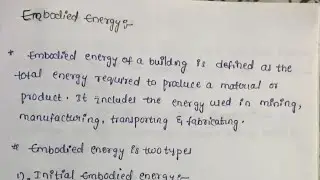 Embodied Energy:-
* Embodied energy of a building is defined as the
total energy required to produce a material or
product. It includes the energy used in mining,
manufacturing, transporting & fabricating.
* Embodied energy is two types
1). Initial Embodied energy:-